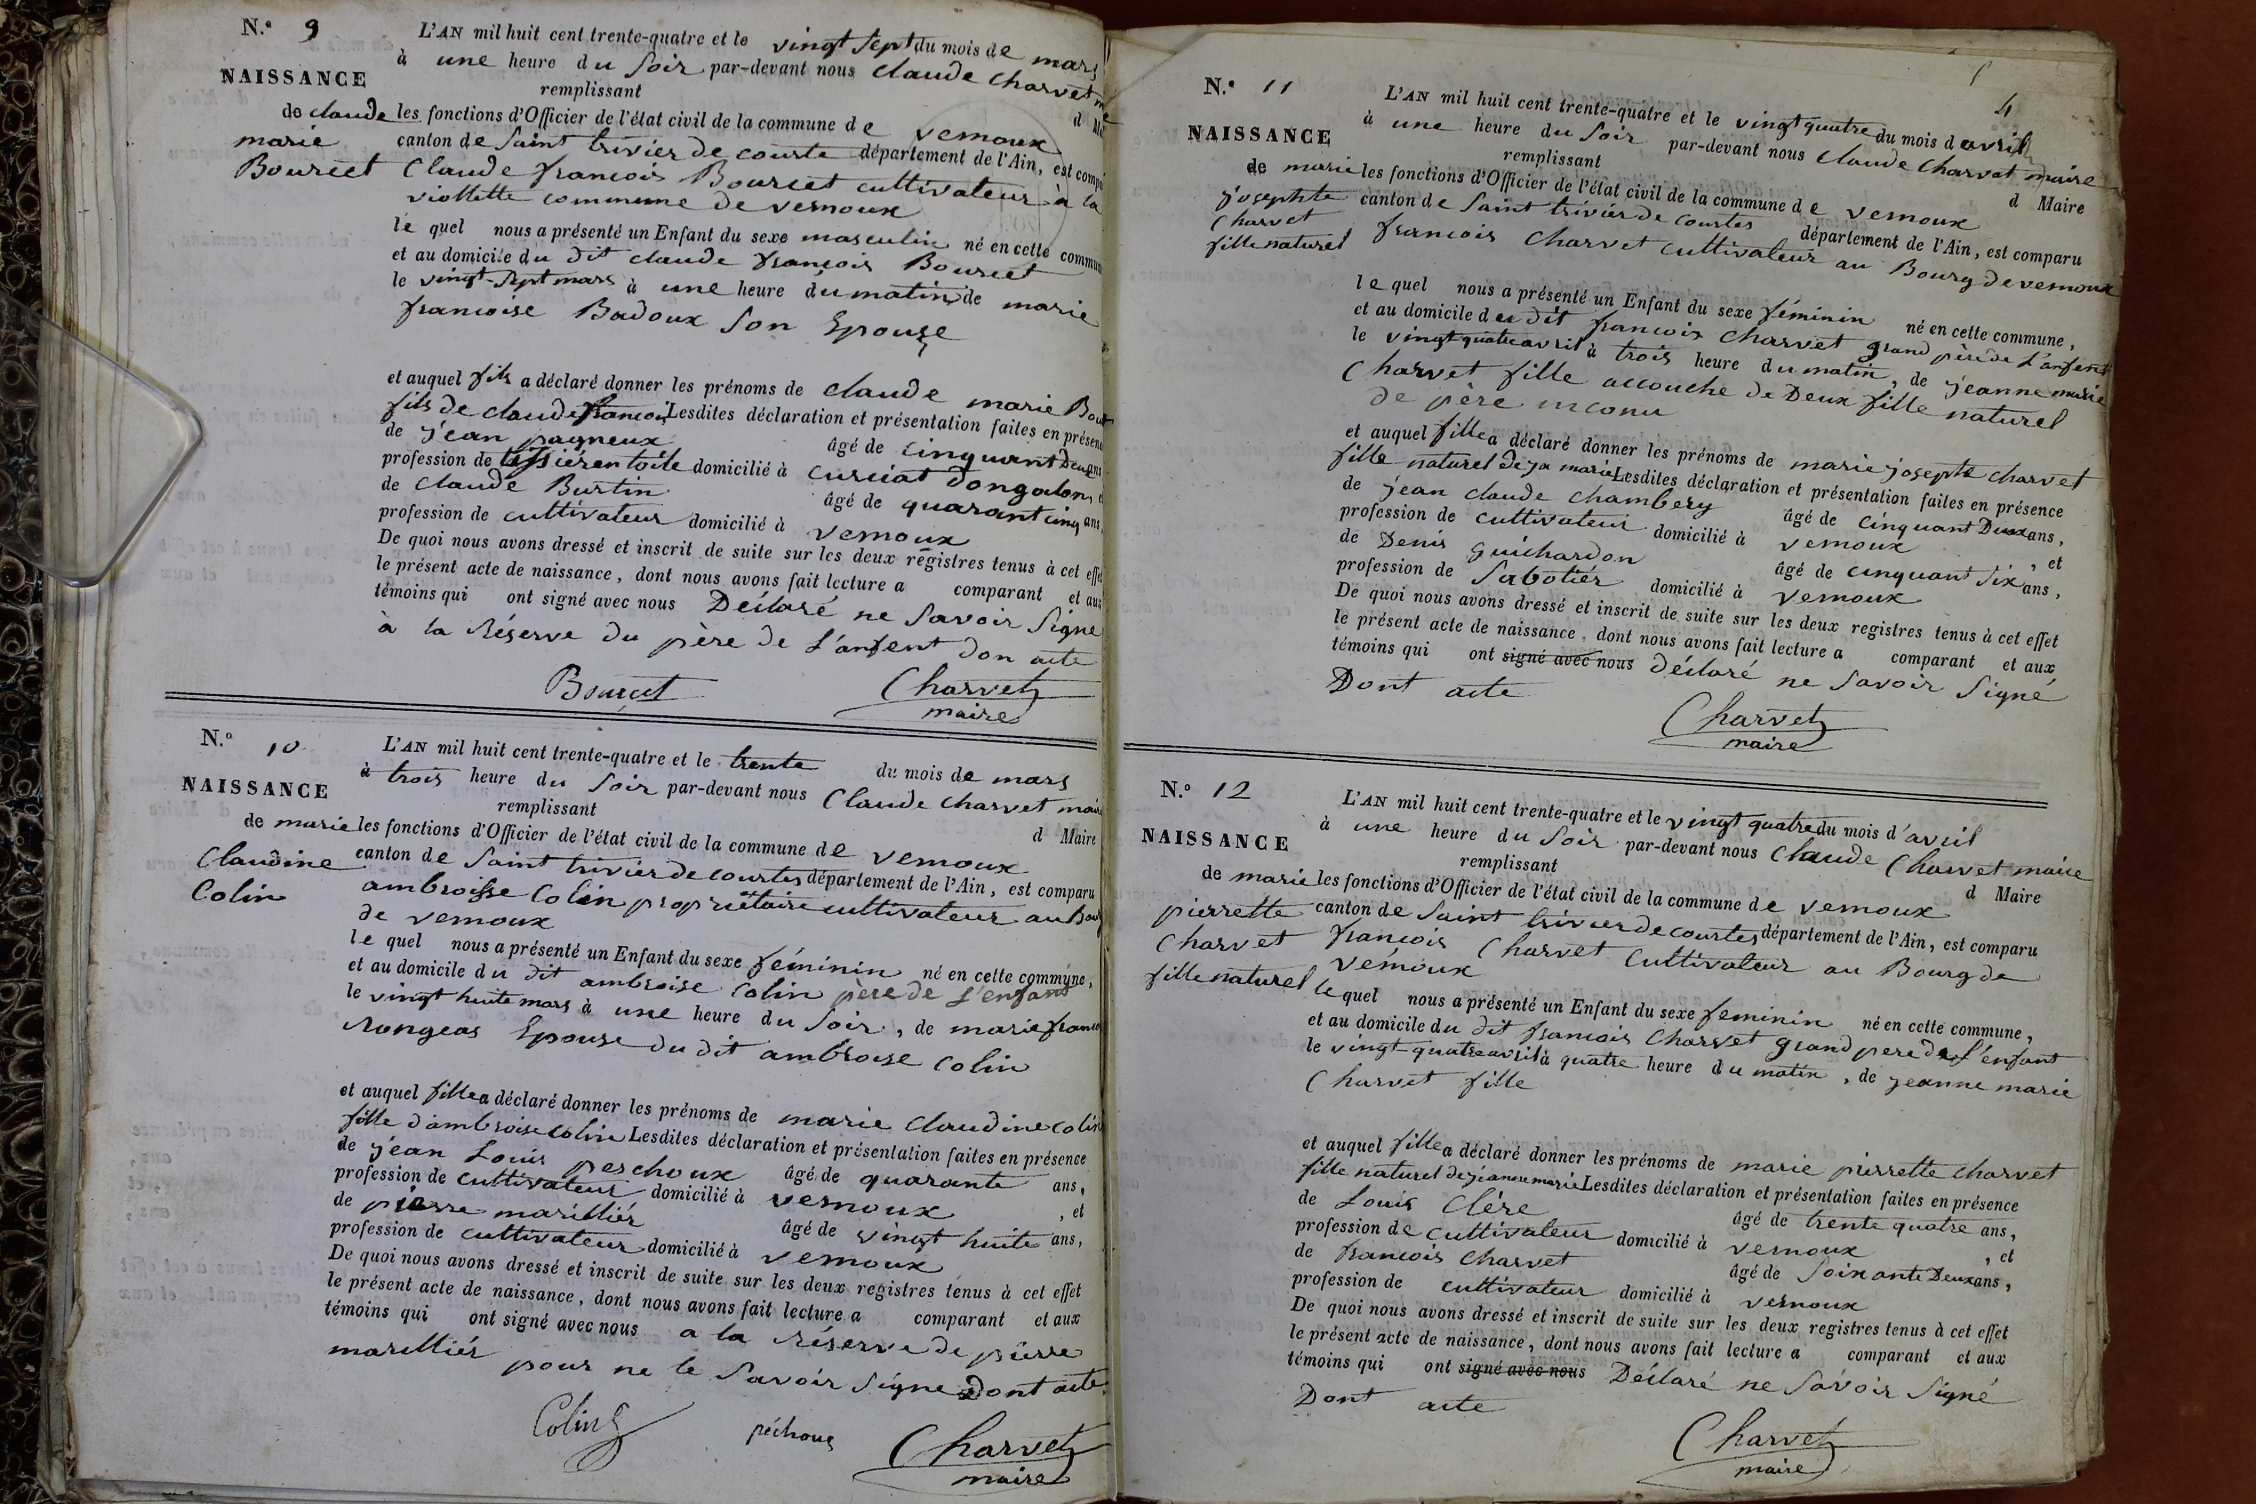 N.° 9
NAISSANCE
de claude
marie
Bourcet
L'AN mil huit cent trente-quatre et le vingt sept du mois de mars
à une heure du soir par-devant nous claude charvet
remplissant
d
les fonctions d'Officier de l'état civil de la commune de vernoux
canton de saint trivier de courte département de l'Ain, est compa
Claude francois Bourcet cultivateur à la
viollette commune de vernoux
le quel nous a présenté un Enfant du sexe masculin né en cette commun
et au domicile du dit claude françois Bourcet
le vingt-sept mars à une heure du matin de marie
francoise Badoux son Epouse
et auquel fils a déclaré donner les prénoms de claude marie Bour
fils de claude francois Lesdites déclaration et présentation faites en présenc
de jean pagneux âgé de cinquant Deux ans
profession de tissiér en toile domicilié à curciat dongalon
de claude Burtin âgé de quarant cinq ans,
profession de cultivateur domicilié à vernoux
De quoi nous avons dressé et inscrit de suite sur les deux registres tenus à cet effet
le présent acte de naissance, dont nous avons fait lecture a comparant et aux
témoins qui ont signé avec nous Déclaré ne savoir signe
à la réserve du père de l'anfent don acte
Bourcet Charvet
maire
N.° 10
NAISSANCE
de marie
Claudine
Colin
L'AN mil huit cent trente-quatre et le trente du mois de mars
à trois heure du soir par-devant nous Claude charvet mair
remplissant
d Maire
les fonctions d'Officier de l'état civil de la commune de vernoux
canton de saint trivier de courtes département de l'Ain, est comparu
ambroisse Colin propriétaire et cultivateur au Bourg
de vernoux
le quel nous a présenté un Enfant du sexe féminin né en cette commune,
et au domicile du dit ambroise colin père de l'enfant
le vingt huite mars à une heure du soir, de marie franco
rongeas Epouse du dit ambroise colin
et auquel fille a déclaré donner les prénoms de marie claudine colin
fille d'ambroise colin Lesdites déclaration et présentation faites en présence
de jean Louis peschoux âgé de quarante ans,
profession de cultivateur domicilié à vernoux , et
de pierre marilliér âgé de vingt huite ans,
profession de cultivateur domicilié à vernoux
De quoi nous avons dressé et inscrit de suite sur les deux registres tenus à cet effet
le présent acte de naissance, dont nous avons fait lecture a comparant et aux
témoins qui ont signé avec nous a la réserve de pierre
marilliér pour ne le savoir signe Dont acte
Colin péchoux Charvet
maire
4
N.° 11
NAISSANCE
de marie
josephte
Charvet
fille naturel
L'AN mil huit cent trente-quatre et le vingt quatre du mois d avril
à une heure du soir par-devant nous Claude Charvet maire
remplissant
d Maire
les fonctions d'Officier de l'état civil de la commune de vernoux
canton de saint trivier de courtes département de l'Ain, est comparu
francois Charvet cultivateur au Bourg de vernoux
le quel nous a présenté un Enfant du sexe féminin né en cette commune,
et au domicile du dit francois Charvet grand père de l'anfent
le vingt quatre avril à trois heure du matin, de jeanne marie
Charvet fille accouche de Deux fille naturel
de père inconu
et auquel fille a déclaré donner les prénoms de marie josephte charvet
fille naturel de ja marie Lesdites déclaration et présentation faites en présence
de jean claude chambery âgé de cinquant Deux ans,
profession de cultivateur domicilié à vernoux , et
de Denis guichardon âgé de cinquant six ans,
profession de sabotiér domicilié à vernoux
De quoi nous avons dressé et inscrit de suite sur les deux registres tenus à cet effet
le présent acte de naissance, dont nous avons fait lecture a comparant et aux
témoins qui ont signé avec nous déclaré ne savoir signé
Dont acte
Charvet
maire
N.° 12
NAISSANCE
de marie
pierrette
Charvet
fille naturel
L'AN mil huit cent trente-quatre et le vingt quatre du mois d'avril
à une heure du soir par-devant nous Claude Charvet maire
remplissant
d Maire
les fonctions d'Officier de l'état civil de la commune de vernoux
canton de saint trivier de courtes département de l'Ain, est comparu
francois Charvet cultivateur au Bourg de
vernoux
le quel nous a présenté un Enfant du sexe feminin né en cette commune,
et au domicile du dit francois Charvet grand pere de l'enfant
le vingt-quatre avril à quatre heure du matin, de jeanne marie
Charvet fille
et auquel fille a déclaré donner les prénoms de marie pierrette charvet
fille naturel de jéanne marie Lesdites déclaration et présentation faites en présence
de Louis Clére âgé de trente quatre ans,
profession de cultivateur domicilié à vernoux , et
de francois Charvet âgé de soixante Deux ans,
profession de cultivateur domicilié à vernoux
De quoi nous avons dressé et inscrit de suite sur les deux registres tenus à cet effet
le présent acte de naissance, dont nous avons fait lecture a comparant et aux
témoins qui ont signé avec nous Déclaré ne savoir signé
Dont acte
Charvet
maire